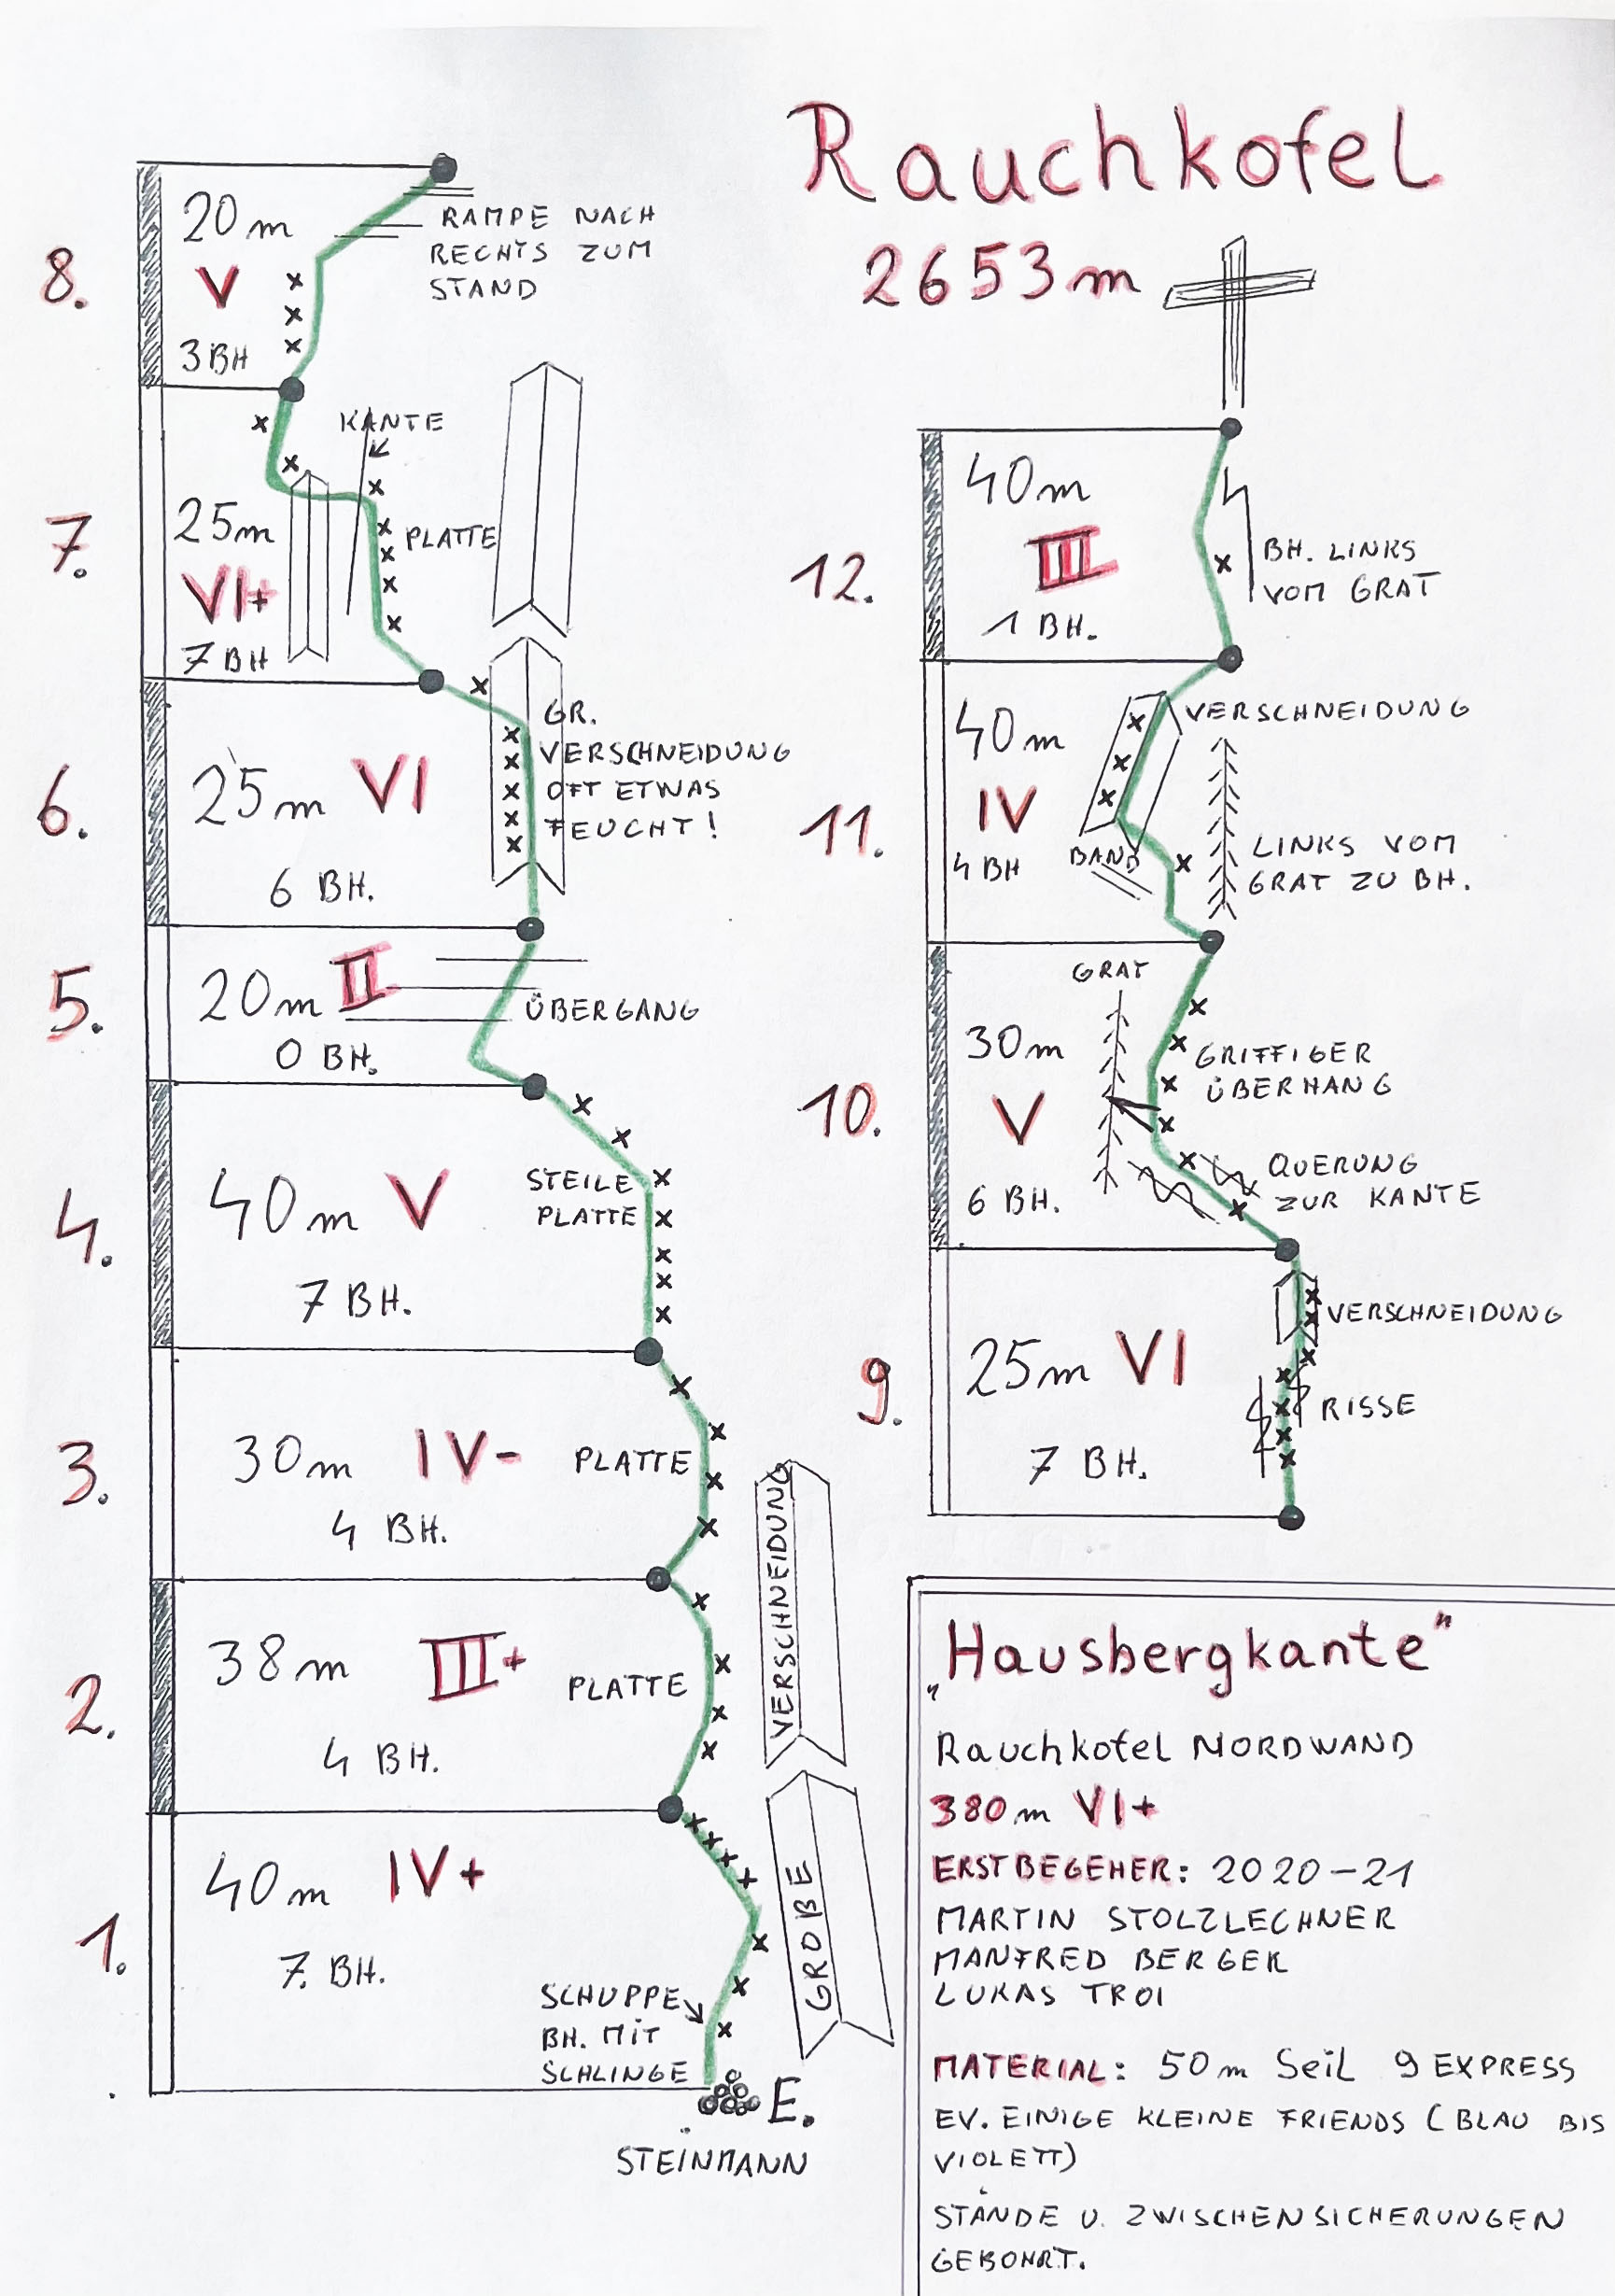 Rauchkofel
2653m
8.
20m
V
3 BH
RAMPE NACH
RECHTS ZUM
STAND
7.
25m
VI+
7 BH
KANTE
PLATTE
6.
25m VI
6 BH.
GR.
VERSCHNEIDUNG
OFT ETWAS
FEUCHT!
5.
20m II
0 BH.
ÜBERGANG
4.
40m V
7 BH.
STEILE
PLATTE
3.
30m IV-
4 BH.
PLATTE
2.
38m III+
4 BH.
PLATTE
VERSCHNEIDUNG
1.
40m IV+
7. BH.
GROßE
SCHUPPE
BH. MIT
SCHLINGE
E.
STEINMANN
12.
40m
III
1 BH.
BH. LINKS
VOM GRAT
11.
40m
IV
4 BH
VERSCHNEIDUNG
BAND
LINKS VOM
GRAT ZU BH.
10.
30m
V
6 BH.
GRAT
GRIFFIGER
ÜBERHANG
QUERUNG
ZUR KANTE
9.
25m VI
7 BH.
VERSCHNEIDUNG
RISSE
„Hausbergkante"
Rauchkofel NORDWAND
380m VI+
ERSTBEGEHER: 2020-21
MARTIN STOLZLECHNER
MANFRED BERGER
LUKAS TROI
MATERIAL: 50m Seil 9 EXPRESS
EV. EINIGE KLEINE FRIENDS (BLAU BIS
VIOLETT)
STÄNDE U. ZWISCHENSICHERUNGEN
GEBOHRT.